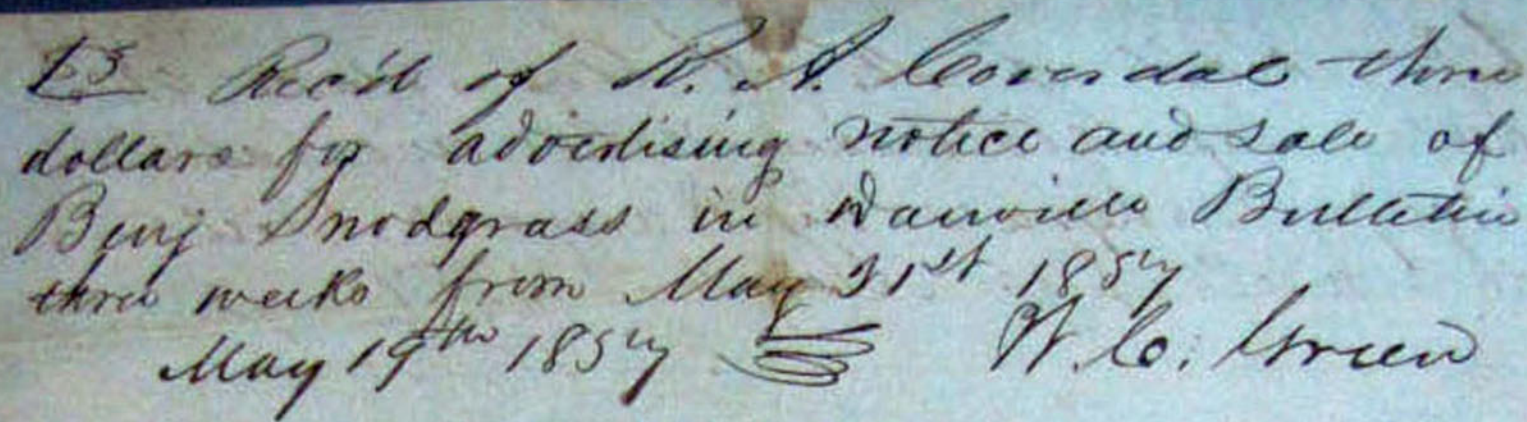 $3 Rec'd of R. A. Coverdale three
dollars for advertising notice and sale of
Benj Snodgrass in Danville Bulletin
three weeks from May 31st 1857
May 19th 1857 W. C. Green